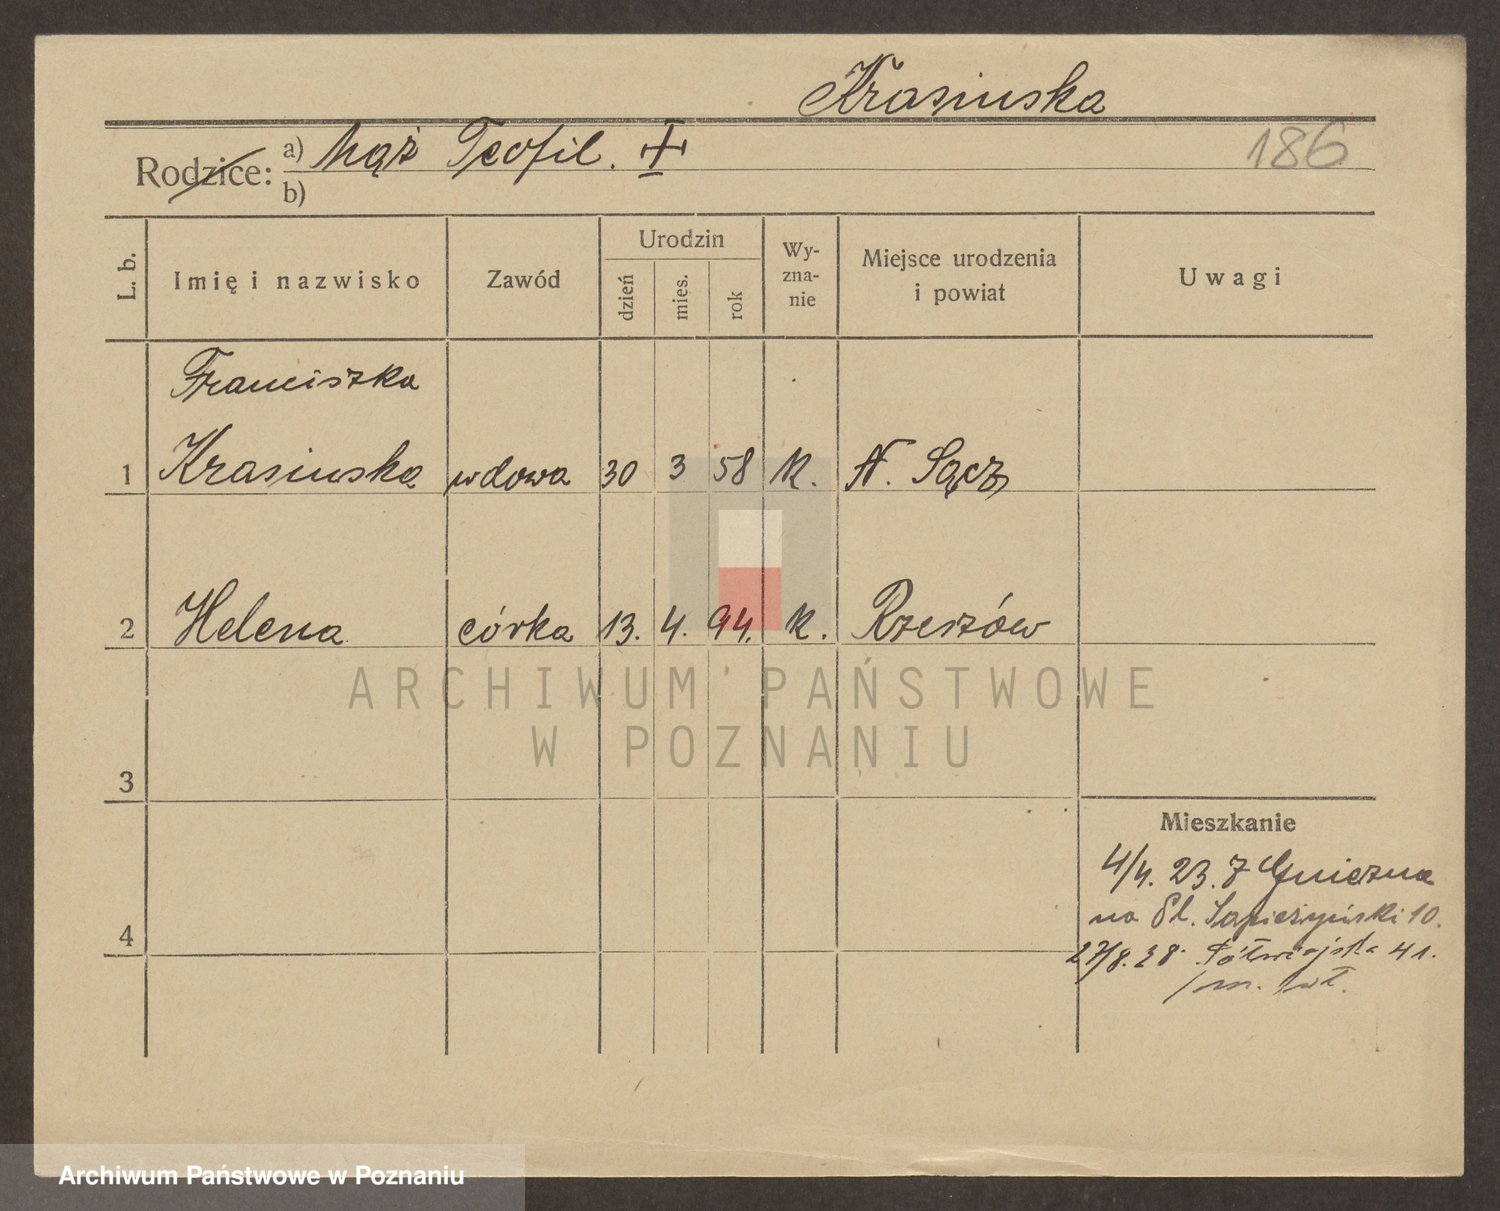 Krasinska
Rodzice: a) Mąż Teofil. 186
b)
L. b. Imię i nazwisko Zawód Urodzin dzień mies. rok Wy-zna-nie Miejsce urodzenia i powiat Uwagi
Franciszka
1 Krasinska wdowa 30 3 58 k. N. Sącz
2 Helena córka 13. 4. 94. k. Rzeszów
ARCHIWUM PAŃSTWOWE
W POZNANIU
3
Mieszkanie
4/4. 23. z Gniezna
na Pl. Sapieżyński 10.
4
27/8. 28. Półwiejska 41.
Archiwum Państwowe w Poznaniu